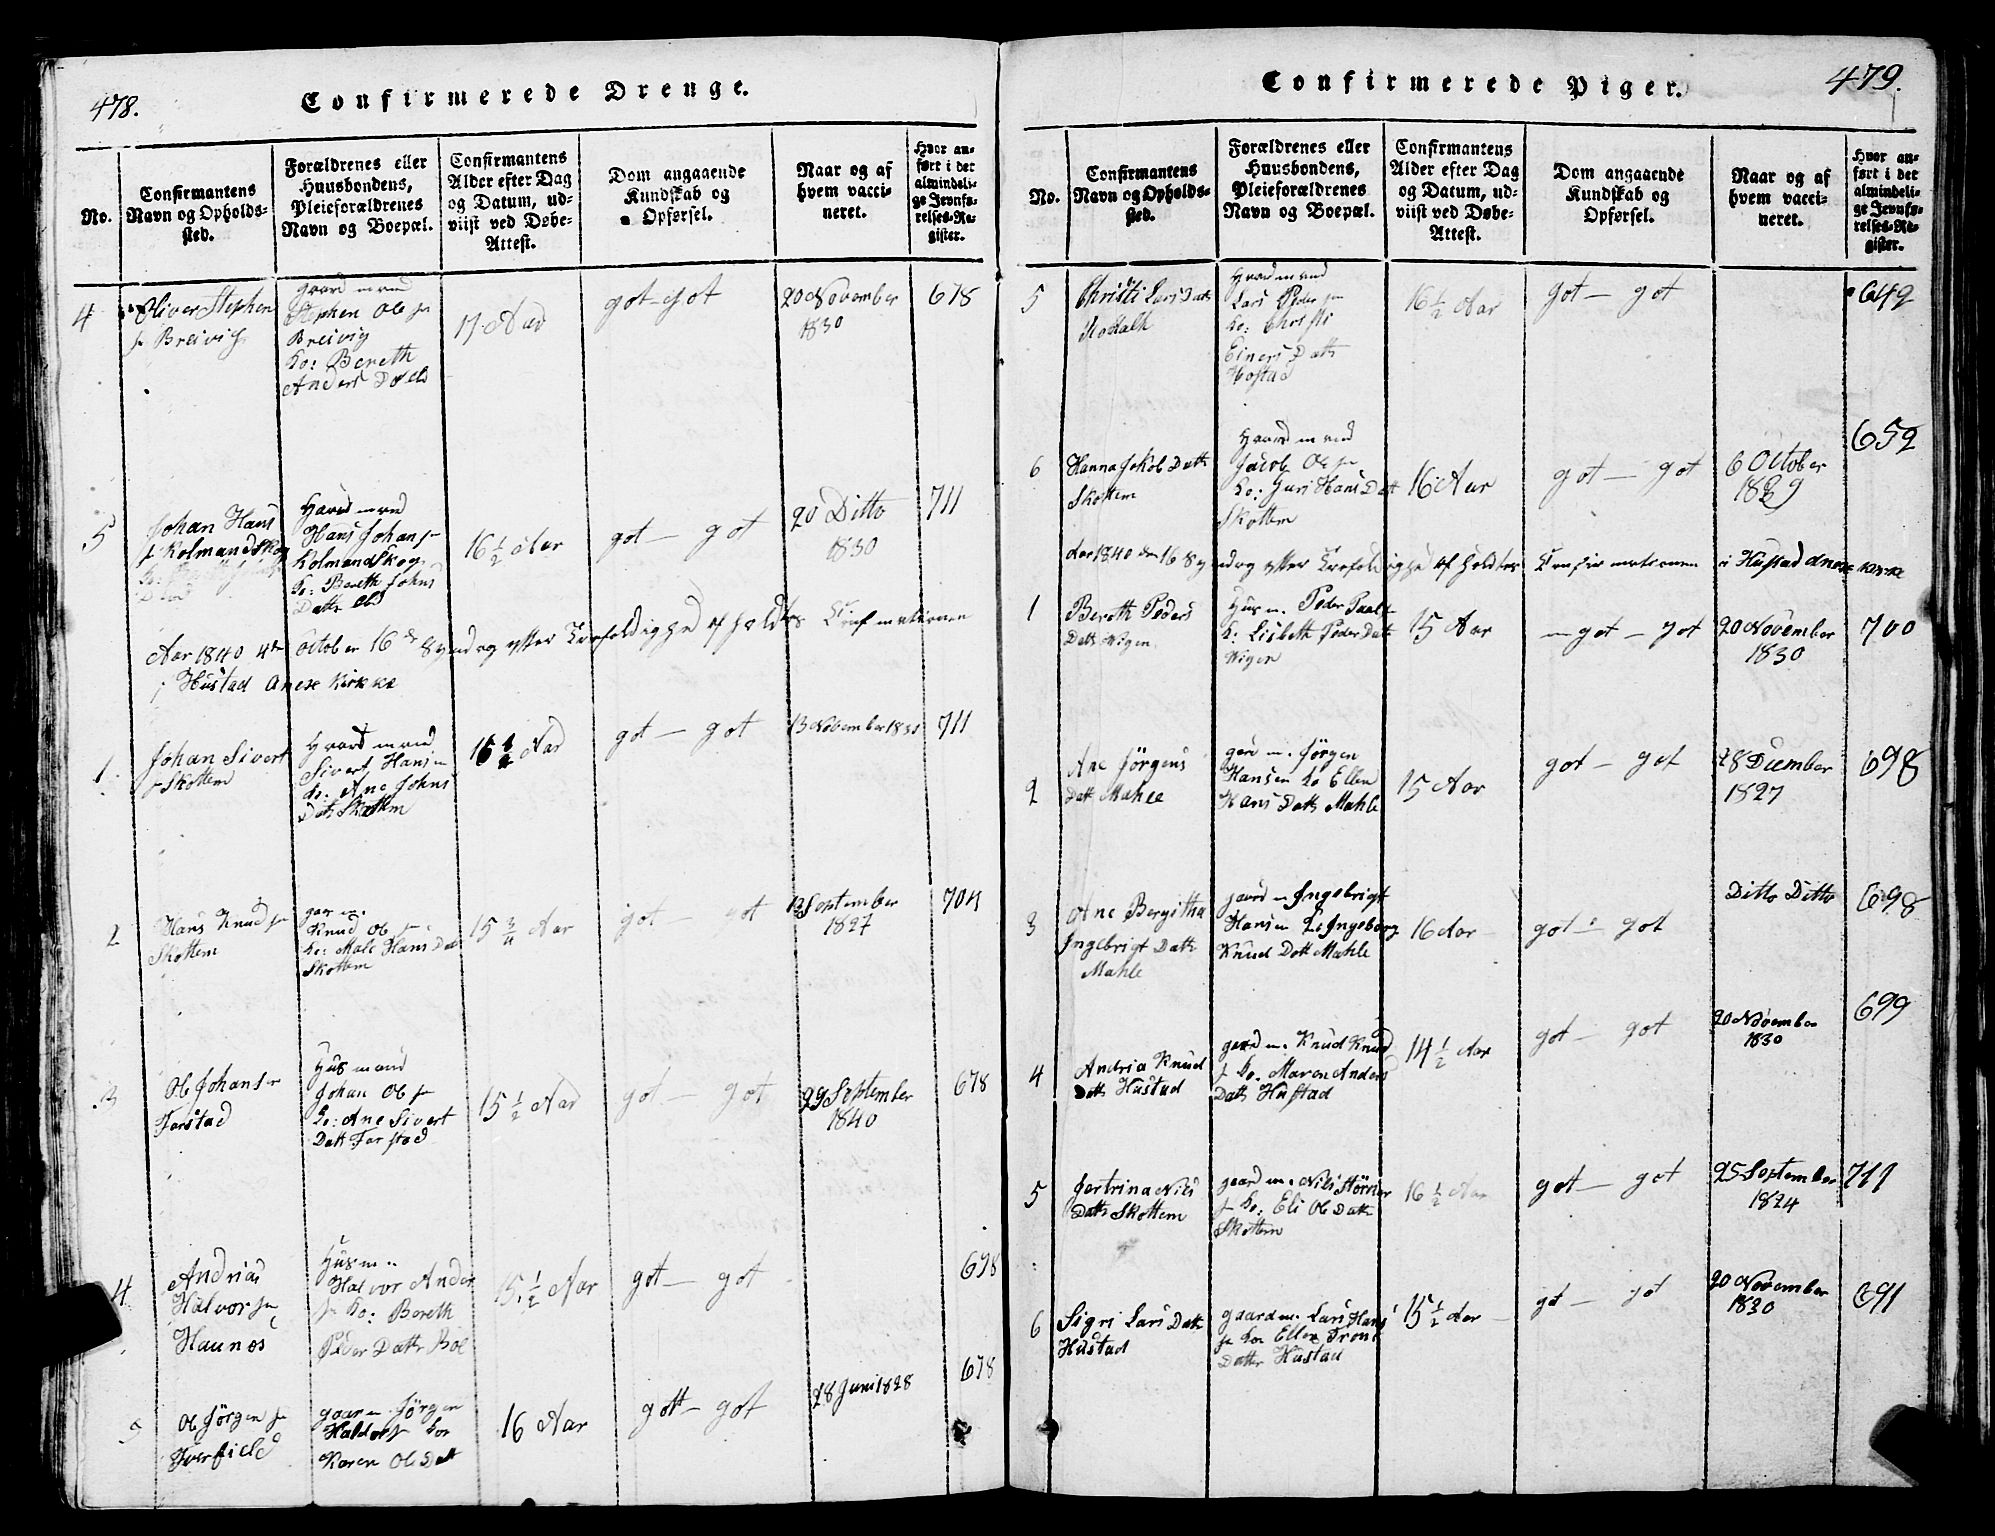 478.
Confirmerede Drenge.
No.
Confirmantens
Navn og Opholds-
sted.
Forældrenes eller
Huusbondens,
Pleieforældrenes
Navn og Boepæl.
Confirmantens
Alder efter Dag
og Datum, ud-
viist ved Døbe-
Attest.
Dom angaaende
Kundskab og
Opførsel.
Naar og af
hvem vacci-
neret.
Hvor an-
ført i det
almindeli-
ge Jevnfø-
relses-Re-
gister.
4
Oliver Stephen
s. Breivig
gaard mand
Stephen Ole s.
Breivig
ko: Bereth
Anders D
17 Aar
got - got
20 November
1830
678
5
Johan Hans
s. Kolmandskog
Hans Johan s.
Kolmandskog
Ko: Bereth Johns
Datt
16 1/2 Aar
got - got
20 Ditto
1830
711
Aar 1840 4de October 16de Syndag efter Trefoldighed af holdtes
i Hustad Anexe Kirkke
1
Johan Sivert
s. Skottem
Sivert Hansen
ko: Ane Johns
Dat Skottem
16 1/2 Aar
got - got
13 November 1831
711
2
Hans Knud s.
Skottem
gaar m.
Knud Ole s.
ko: Male Hans Dat
Skottem
15 3/4 Aar
got - got
13 September
1827
704
3
Ole Johans
Farstad
Husmand
Johan Ole s.
ko: Ane Sivert
Datt Farstad
15 1/2 Aar
got - got
29 September
1840
678
4
Andrias
Halvor s.
Haunos
Husm.
Halvor Ander
s. ko: Bereth
Peder Datt Bol
15 1/2 Aar
got - got
678
5
Ole Jørgen s.
gaar m. Jørgen
Haldor s. ko
Karen Ole Datt
16 Aar
gott - got
28 Juni 1828
678
Confirmerede Piger.
479.
No.
Confirmantens
Navn og Opholds-
sted.
Forældrenes eller
Huusbondens,
Pleieforældrenes
Navn og Boepæl.
Confirmantens
Alder efter Dag
og Datum, ud-
viist ved Døbe-
Attest.
Dom angaaende
Kundskab og
Opførsel.
Naar og af
hvem vacci-
neret.
Hvor an-
ført i det
almindeli-
ge Jevnfø-
relses-Re-
gister.
5
Christi Lars Datt
Lars Peder s.
ko: Christi
Einers Datt
Hostad
16 1/2 Aar
got - got
649
6
Hanna Jakob Datt
Skottem
Jacob Ole s.
ko: Guri Hans Datt
Skottem
16 Aar
got - got
6 October
1829
652
Aar 1840 den 16 Syndag efter Trefoldighed af holdtes Confirmationen i Hustad Anexe Kirke
1
Bereth Peders
Datt Wigen
Husm. Peder Paal s.
k: Lisbeth Peder Dat
Wigen
15 Aar
got - got
20 November
1830
700
2
Ane Jørgens
Datt Mahle
gard m. Jørgen
Hansen ko Ellen
Hans Datt Mahle
15 Aar
got - got
28 Diember
1827
698
3
Ane Bergitha
Ingebrigt Datt
Mahle
gaard m Ingebrigt
Hansen ko Ingeborg
Knud Dott Mahle
16 Aar
got - got
Ditto Ditto
698
4
Andria Knud
Dott Hustad
gaard m. Knud Knud
s. ko. Maren Anders
Datt Hustad
14 1/2 Aar
got - got
20 November
1830
699
5
Jertrina Nils
Datt Skottem
gaard m. Nils Størker
s. ko: Eli Ole Datt
Skottem
16 1/2 Aar
got - got
25 September
1824
711
6
Sigri Lars Datt
Hustad
gaard m. Lars Hans
s. ko Ellen Tron
Datter Hustad
15 1/2 Aar
got - got
20 November
1830
691